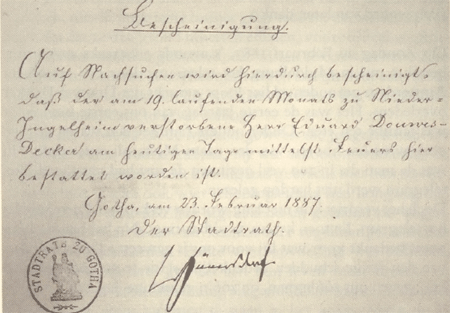 Bescheinigung.
Auf Nachsuchen wird hierdurch bescheinigt,
daß der am 19. laufenden Monats zu Nieder-
Ingelheim verstorbene Herr Eduard Douwes-
Decker am heutigen Tage mittelst Feuers hier
bestattet worden ist.
Gotha, am 23. Februar 1887.
Der Stadtrath.
Hünersdorf
STADTRATH ZU GOTHA